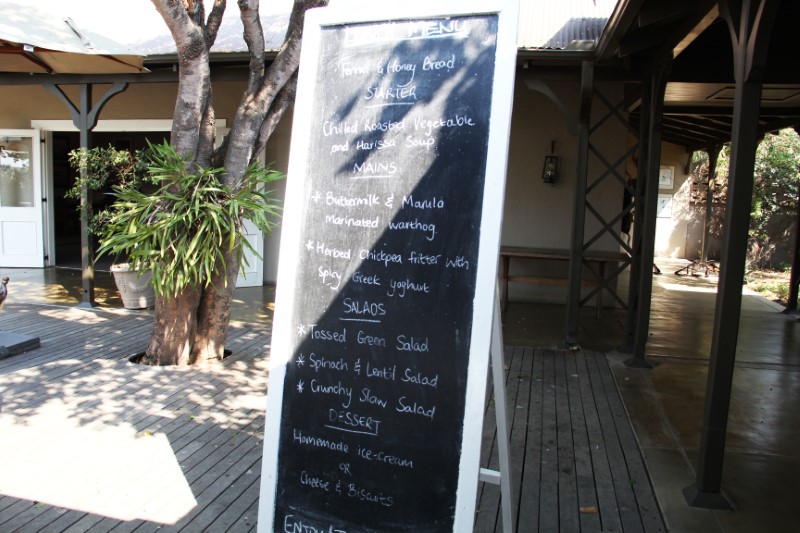 MENU
Fennel & Honey Bread
STARTER
Chilled Roasted Vegetable
and Harissa Soup
MAINS
* Buttermilk & Marula
marinated warthog.
* Herbed Chickpea fritter with
spicy Greek yoghurt
SALADS
* Tossed Green Salad
* Spinach & Lentil Salad
* Crunchy Slaw Salad
DESSERT
Homemade ice-cream
or
Cheese & Biscuits